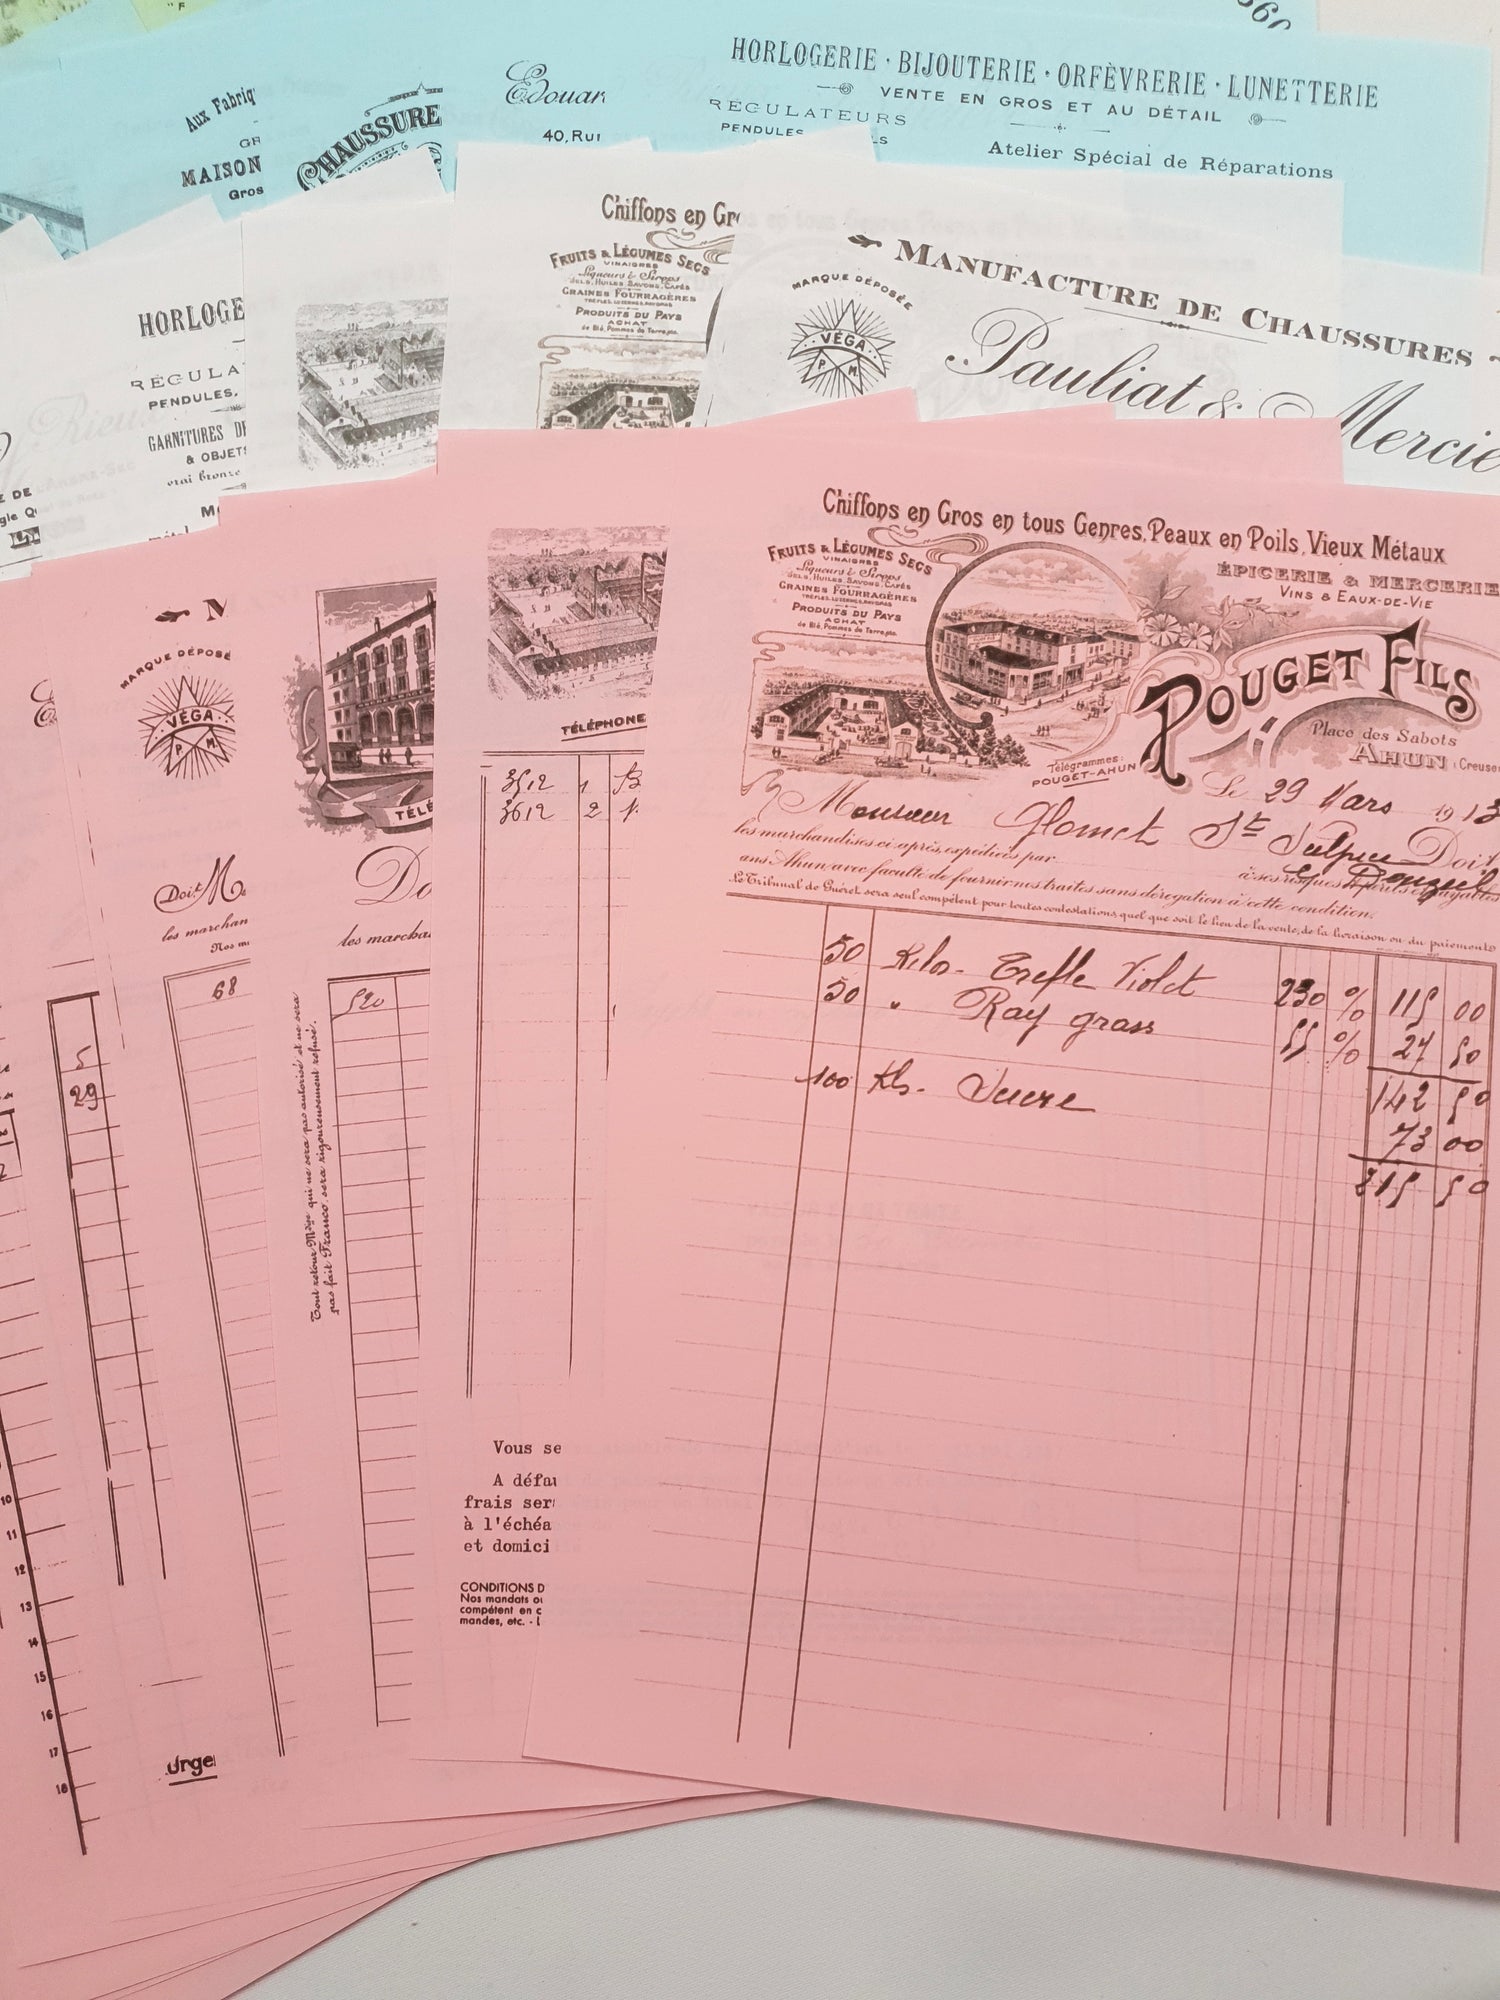 "F
360
HORLOGERIE · BIJOUTERIE · ORFÈVRERIE · LUNETTERIE
VENTE EN GROS ET AU DÉTAIL
RÉGULATEURS
PENDULES
LS
Atelier Spécial de Réparations
Edouar
40, Ru
Aux Fabriq
GR
MAISON
Gros
CHAUSSURE
HORLOGE
RÉGULA
PENDULES,
GARNITURES D
& OBJET
vrai bronze
M
E DE
gle
Chiffons en Gr
FRUITS & LÉGUMES SECS
VINAIGRES
Liqueurs & Sirops
SELS, HUILES, SAVONS, CAFÉS
GRAINES FOURRAGÈRES
TRÈFLES, LUZERNES, RAYGRAS
PRODUITS DU PAYS
ACHAT
de Blé, Pommes de Terre, etc.
MANUFACTURE DE CHAUSSURES
MARQUE DÉPOSÉE
VÉGA
P M
Pauliat & Mercie
M
MARQUE DÉPOSÉ
VÉGA
P M
Doit M
les marchan
Nos m
68
5
29
10
11
12
13
14
15
16
17
18
urge
TÉLÉ
Do
les marcha
520
Tout retour Mdse qui ne sera pas autorisé et ne sera
pas fait Franco sera rigoureusement refusé.
TÉLÉPHONE
3512 1 B
3612 2
Vous se
A défau
frais ser
à l'échéa
et domici
CONDITIONS D
Nos mandats ou
compétent en c
mandes, etc. -
Chiffons en Gros en tous Genres, Peaux en Poils, Vieux Métaux
FRUITS & LÉGUMES SECS
VINAIGRES
Liqueurs & Sirops
SELS, HUILES, SAVONS, CAFÉS
GRAINES FOURRAGÈRES
TRÈFLES, LUZERNES, RAYGRAS
PRODUITS DU PAYS
ACHAT
de Blé, Pommes de Terre, etc.
ÉPICERIE & MERCERIE
VINS & EAUX-DE-VIE
POUGET FILS
Place des Sabots
AHUN (Creuse
Télégrammes:
POUGET-AHUN
Le 29 Mars 1913
Monsieur Glomet St Sulpice Doit
les marchandises ci-après, expédiées par à ses risques & périls & payables
ans Ahun, avec faculté de fournir nos traites sans dérogation à cette condition.
Le Tribunal de Guéret sera seul compétent pour toutes contestations quel que soit le lieu de la vente, de la livraison ou du paiement
50 Kilos Trefle Violet 230 % 115 00
50 " Ray grass 55 % 27 50
142 50
100 Kls. Sucre 73 00
215 50